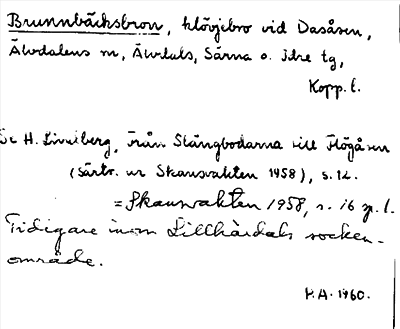 Brunnbäcksbron, klövjebro vid Dasåsen,
Älvdalens sn, Älvdals, Särna o. Idre tg,
Kopp. l.
Se H. Lindberg, Från Stängbodarna till Högåsen
(särtr. ur Skansvakten 1958), s. 12.
= Skansvakten 1958, s. 16 sp. 1.
Tidigare inom Lillhärdals socken-
område.
P.A. 1960.